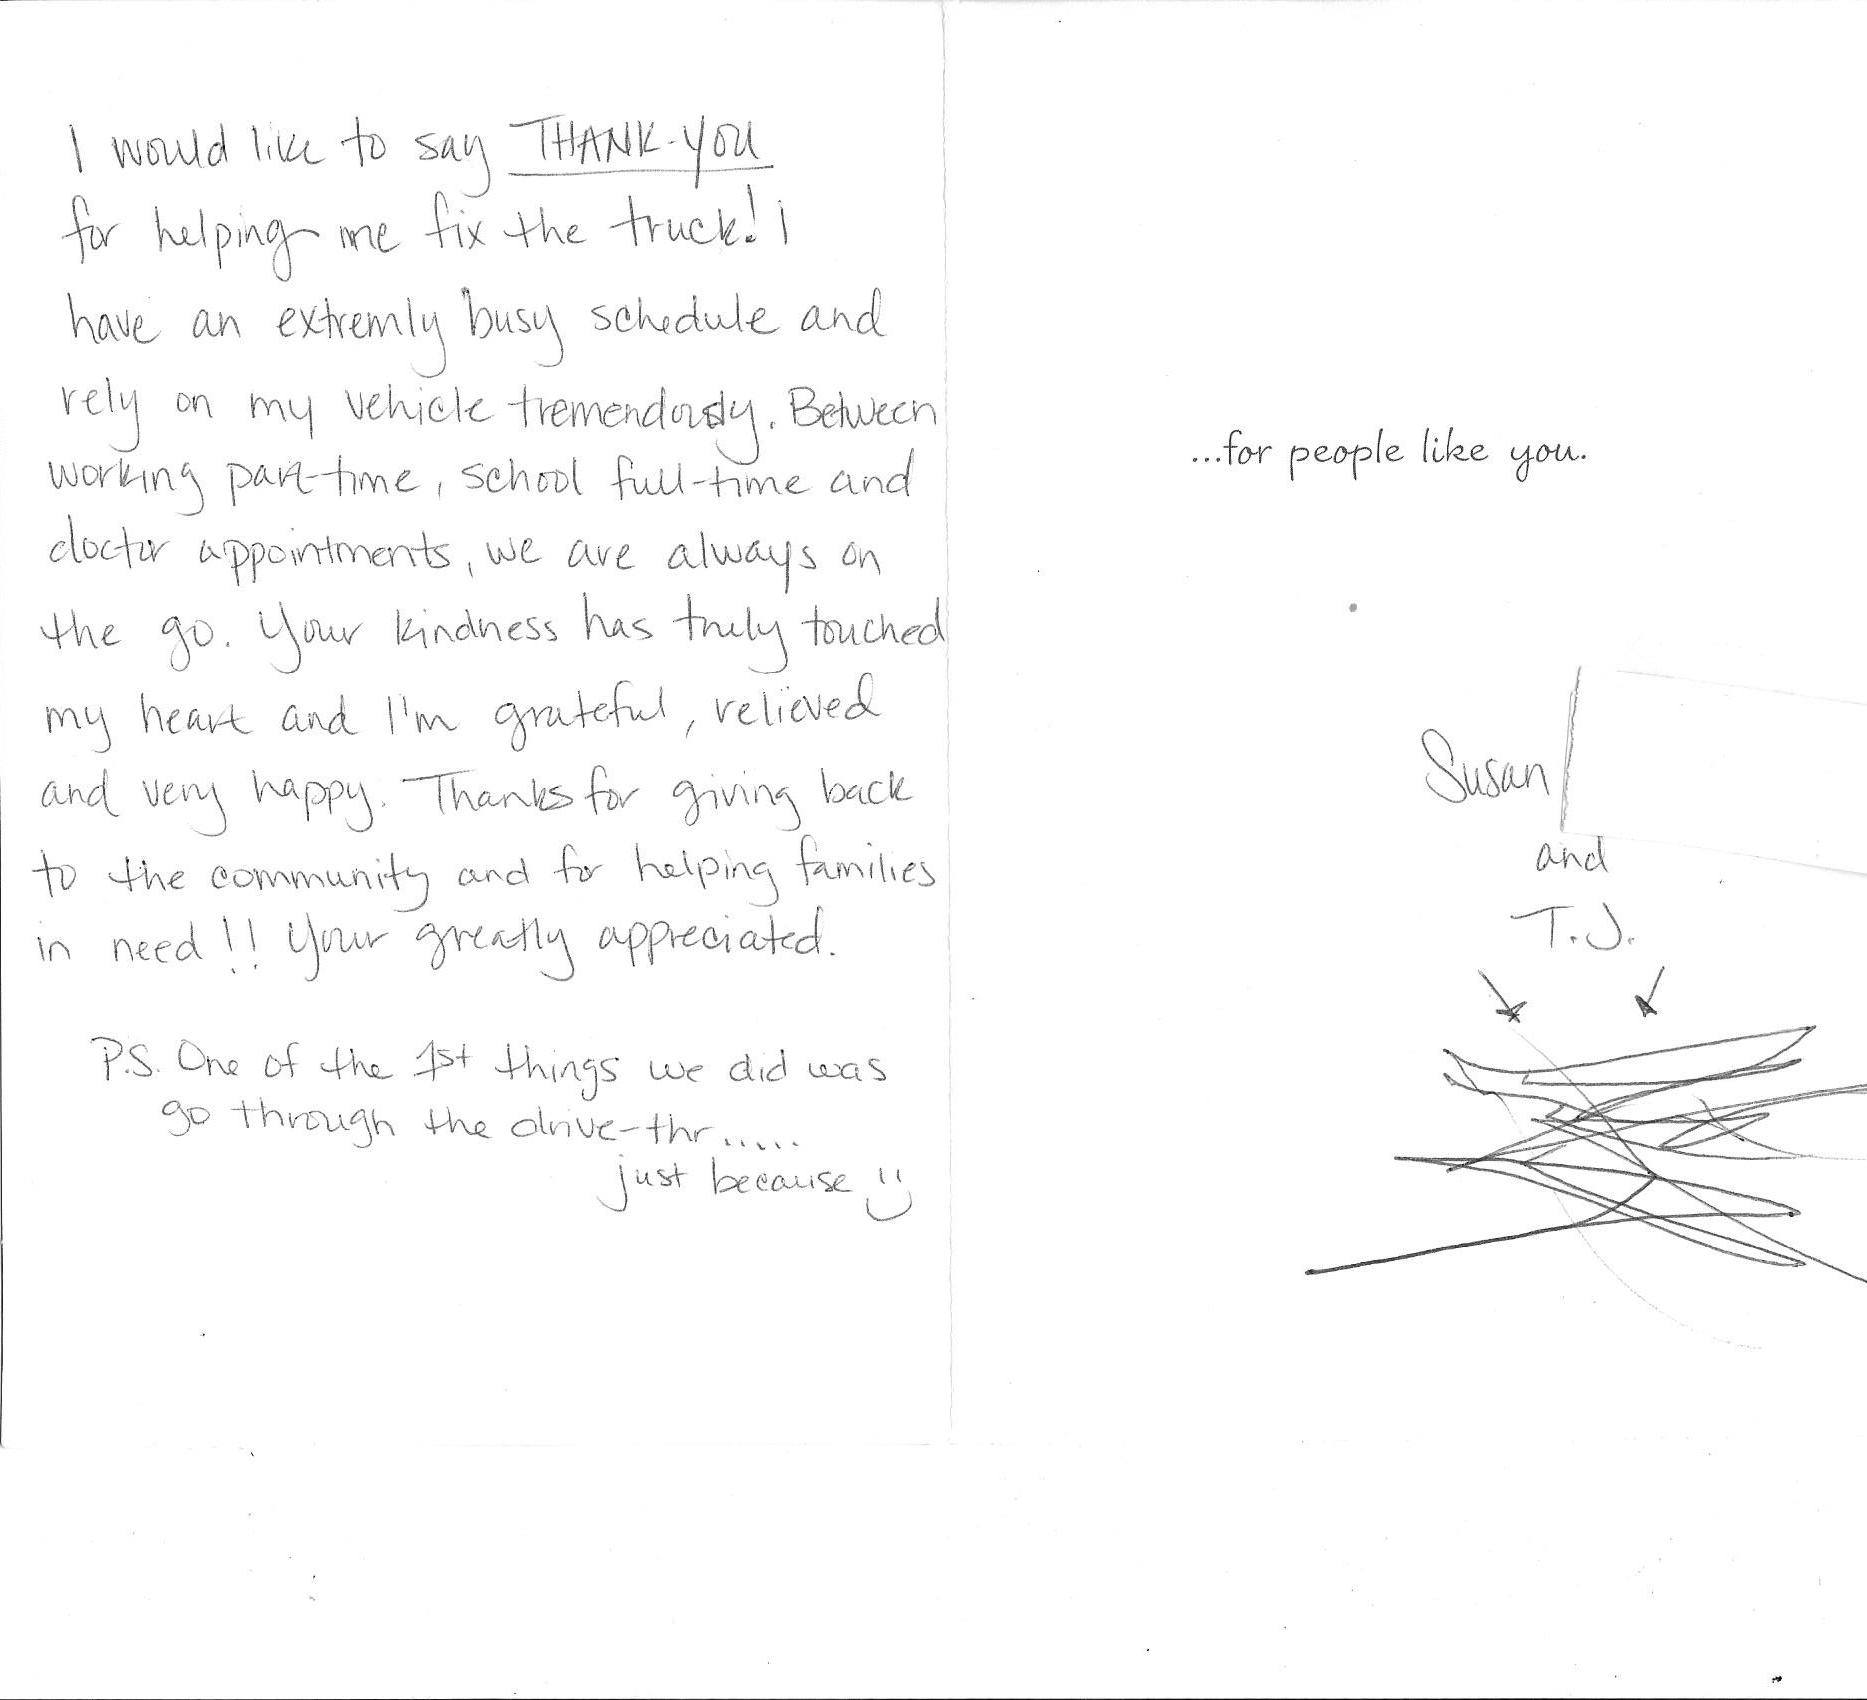 I would like to say THANK-YOU
for helping me fix the truck! I
have an extremly busy schedule and
rely on my vehicle tremendously. Between
working part-time, school full-time and
doctor appointments, we are always on
the go. Your kindness has truly touched
my heart and I'm grateful, relieved
and very happy. Thanks for giving back
to the community and for helping families
in need!! Your greatly appreciated.
P.S. One of the 1st things we did was
go through the drive-thr.....
just because
...for people like you.
Susan
and
T.J.